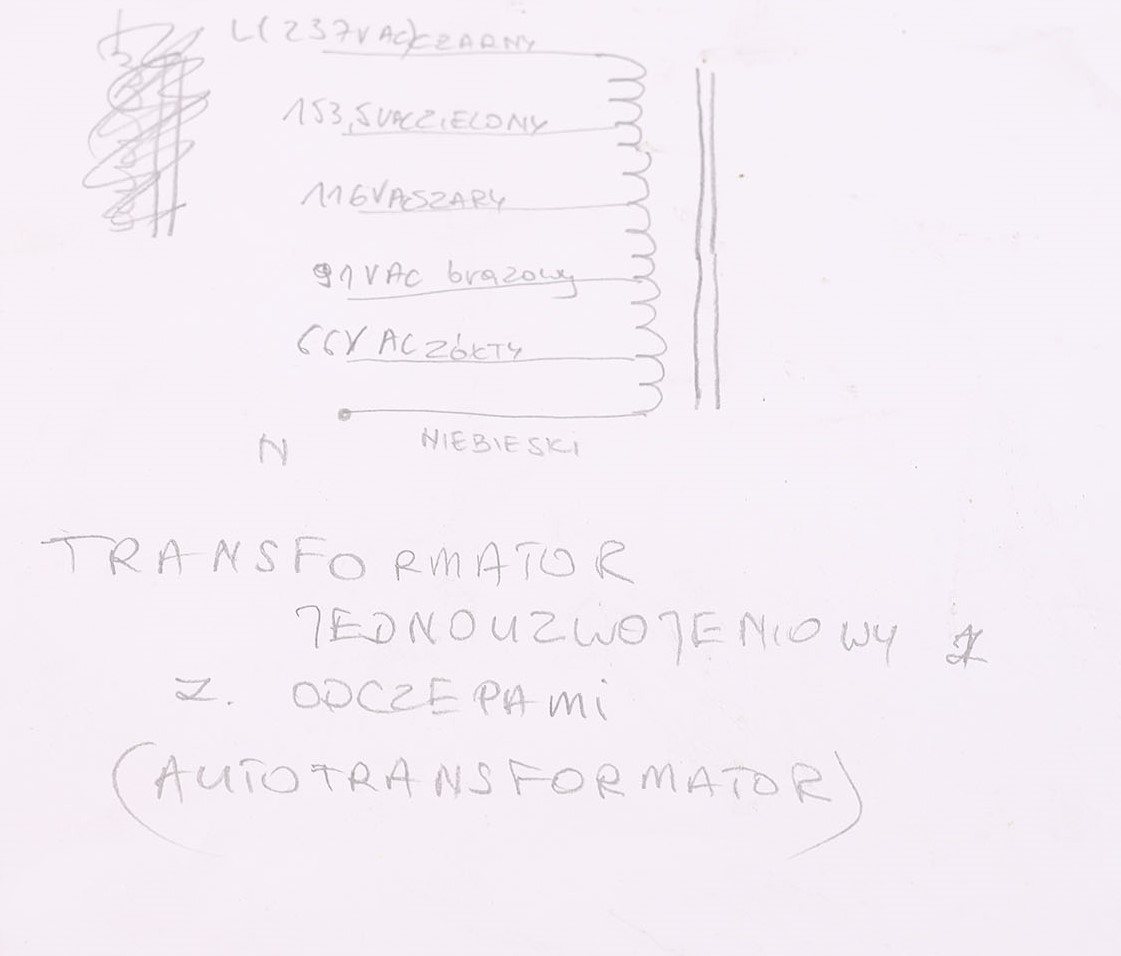 L(237VAC)CZARNY
153,5VACZIELONY
116VACSZARY
91VAC brązowy
66V AC ŻÓŁTY
NIEBIESKI
N
TRANSFORMATOR
JEDNOUZWOJENIOWY
Z. ODCZEPAMi
(AUTOTRANSFORMATOR)